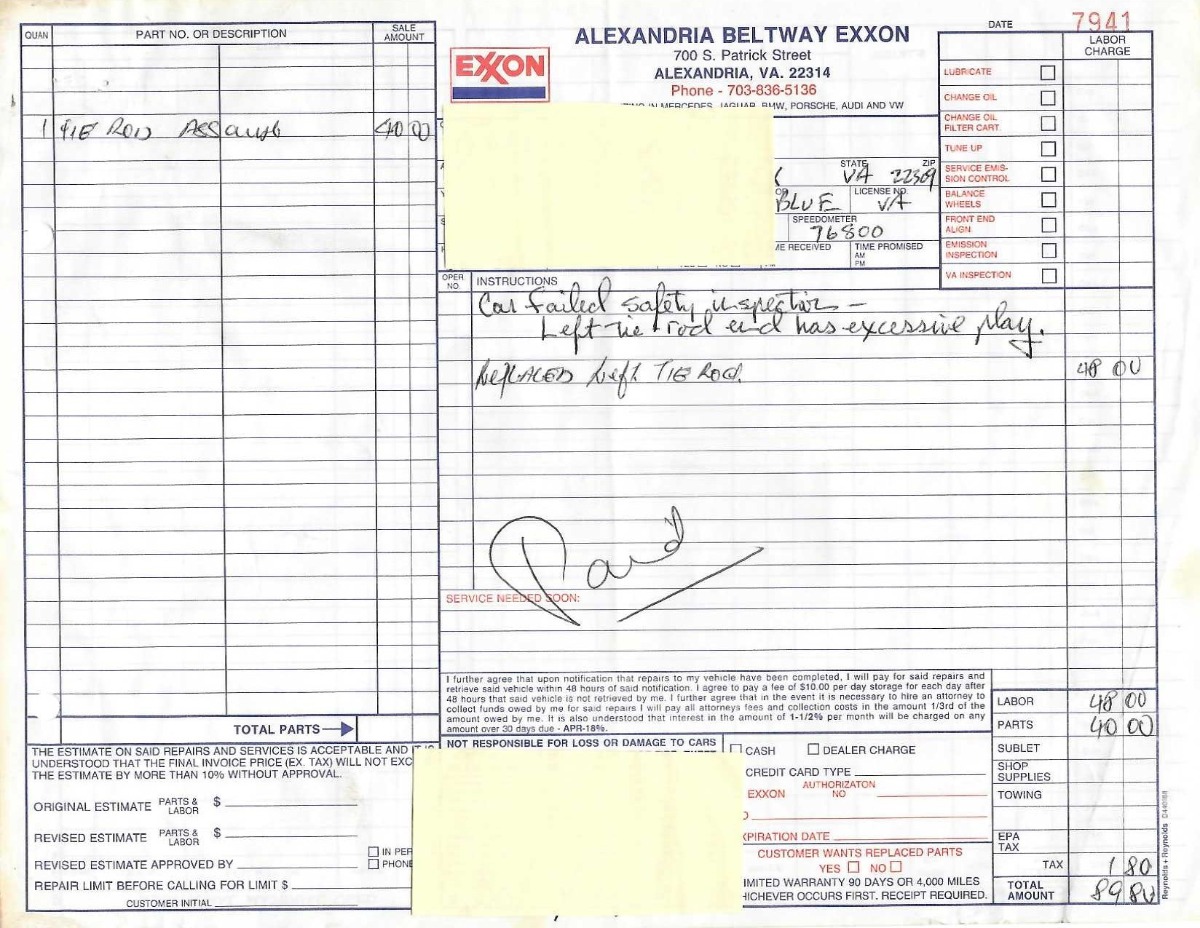 DATE 7941
QUAN PART NO. OR DESCRIPTION SALE AMOUNT
1 TIE ROD 40 00
TOTAL PARTS
THE ESTIMATE ON SAID REPAIRS AND SERVICES IS ACCEPTABLE AND IT IS
UNDERSTOOD THAT THE FINAL INVOICE PRICE (EX. TAX) WILL NOT EXC
THE ESTIMATE BY MORE THAN 10% WITHOUT APPROVAL.
ORIGINAL ESTIMATE PARTS & LABOR $
REVISED ESTIMATE PARTS & LABOR $
REVISED ESTIMATE APPROVED BY
IN PER
PHONE
REPAIR LIMIT BEFORE CALLING FOR LIMIT $
CUSTOMER INITIAL
EXXON
ALEXANDRIA BELTWAY EXXON
700 S. Patrick Street
ALEXANDRIA, VA. 22314
Phone - 703-836-5136
IN MERCEDES, JAGUAR, BMW, PORSCHE, AUDI AND VW
STATE ZIP
VA 22309
LICENSE NO.
BLUE VA
SPEEDOMETER
76800
ME RECEIVED TIME PROMISED
AM
PM
LABOR CHARGE
LUBRICATE
CHANGE OIL
CHANGE OIL
FILTER CART.
TUNE UP
SERVICE EMIS-
SION CONTROL
BALANCE
WHEELS
FRONT END
ALIGN
EMISSION
INSPECTION
VA INSPECTION
OPER NO. INSTRUCTIONS
Car failed safety inspection -
Left tie rod end has excessive play.
REPLACED Left TIE ROD. 48 00
Paid
SERVICE NEEDED SOON:
I further agree that upon notification that repairs to my vehicle have been completed, I will pay for said repairs and
retrieve said vehicle within 48 hours of said notification. I agree to pay a fee of $10.00 per day storage for each day after
48 hours that said vehicle is not retrieved by me. I further agree that in the event it is necessary to hire an attorney to
collect funds owed by me for said repairs I will pay all attorneys fees and collection costs in the amount 1/3rd of the
amount owed by me. It is also understood that interest in the amount of 1-1/2% per month will be charged on any
amount over 30 days due - APR-18%.
NOT RESPONSIBLE FOR LOSS OR DAMAGE TO CARS
CASH DEALER CHARGE
CREDIT CARD TYPE
EXXON AUTHORIZATON NO
XPIRATION DATE
CUSTOMER WANTS REPLACED PARTS
YES NO
IMITED WARRANTY 90 DAYS OR 4,000 MILES
HICHEVER OCCURS FIRST. RECEIPT REQUIRED.
LABOR 48 00
PARTS 40 00
SUBLET
SHOP
SUPPLIES
TOWING
EPA
TAX
TAX 1 80
TOTAL
AMOUNT 89 80
Reynolds + Reynolds